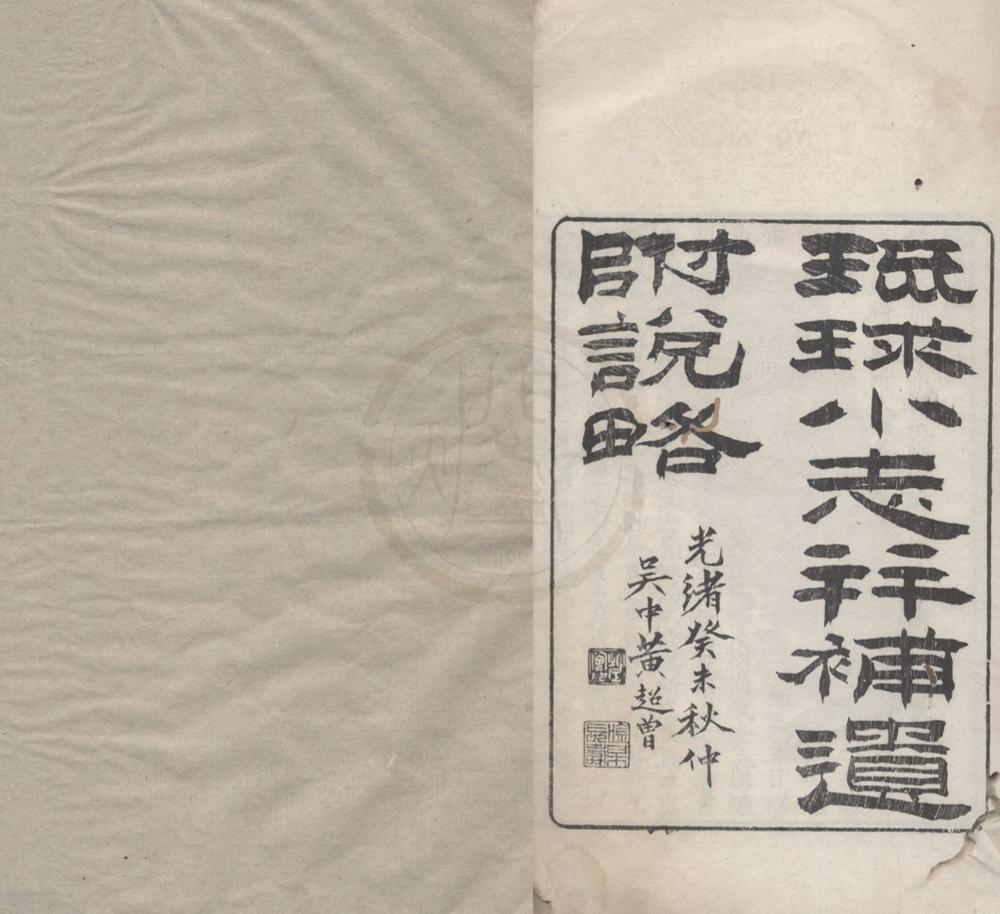 琉球小志并補遺
附說略
光緒癸未秋仲
吳中黃超曾